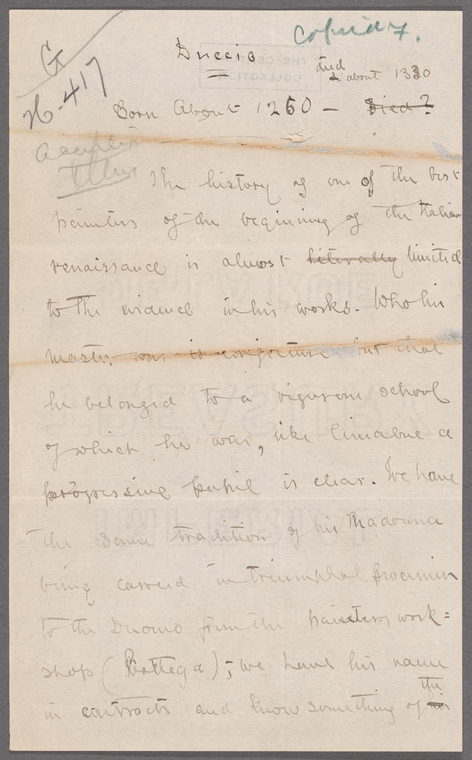 G
copied
Duccio
26-417
died about 1330
Born About 1260 – Died?
The history of one of the best
painters of the beginning of the Italian
renaissance is almost literally limited
to the evidence in his works. Who his
master was is conjecture but that
he belonged to a vigorous school
of which he was, like Cimabue a
progressive pupil is clear. We have
the same tradition of his Madonna
being carried in triumphal procession
to the Duomo from the painters work=
shop (Bottega); we have his name
in contracts and know something of the